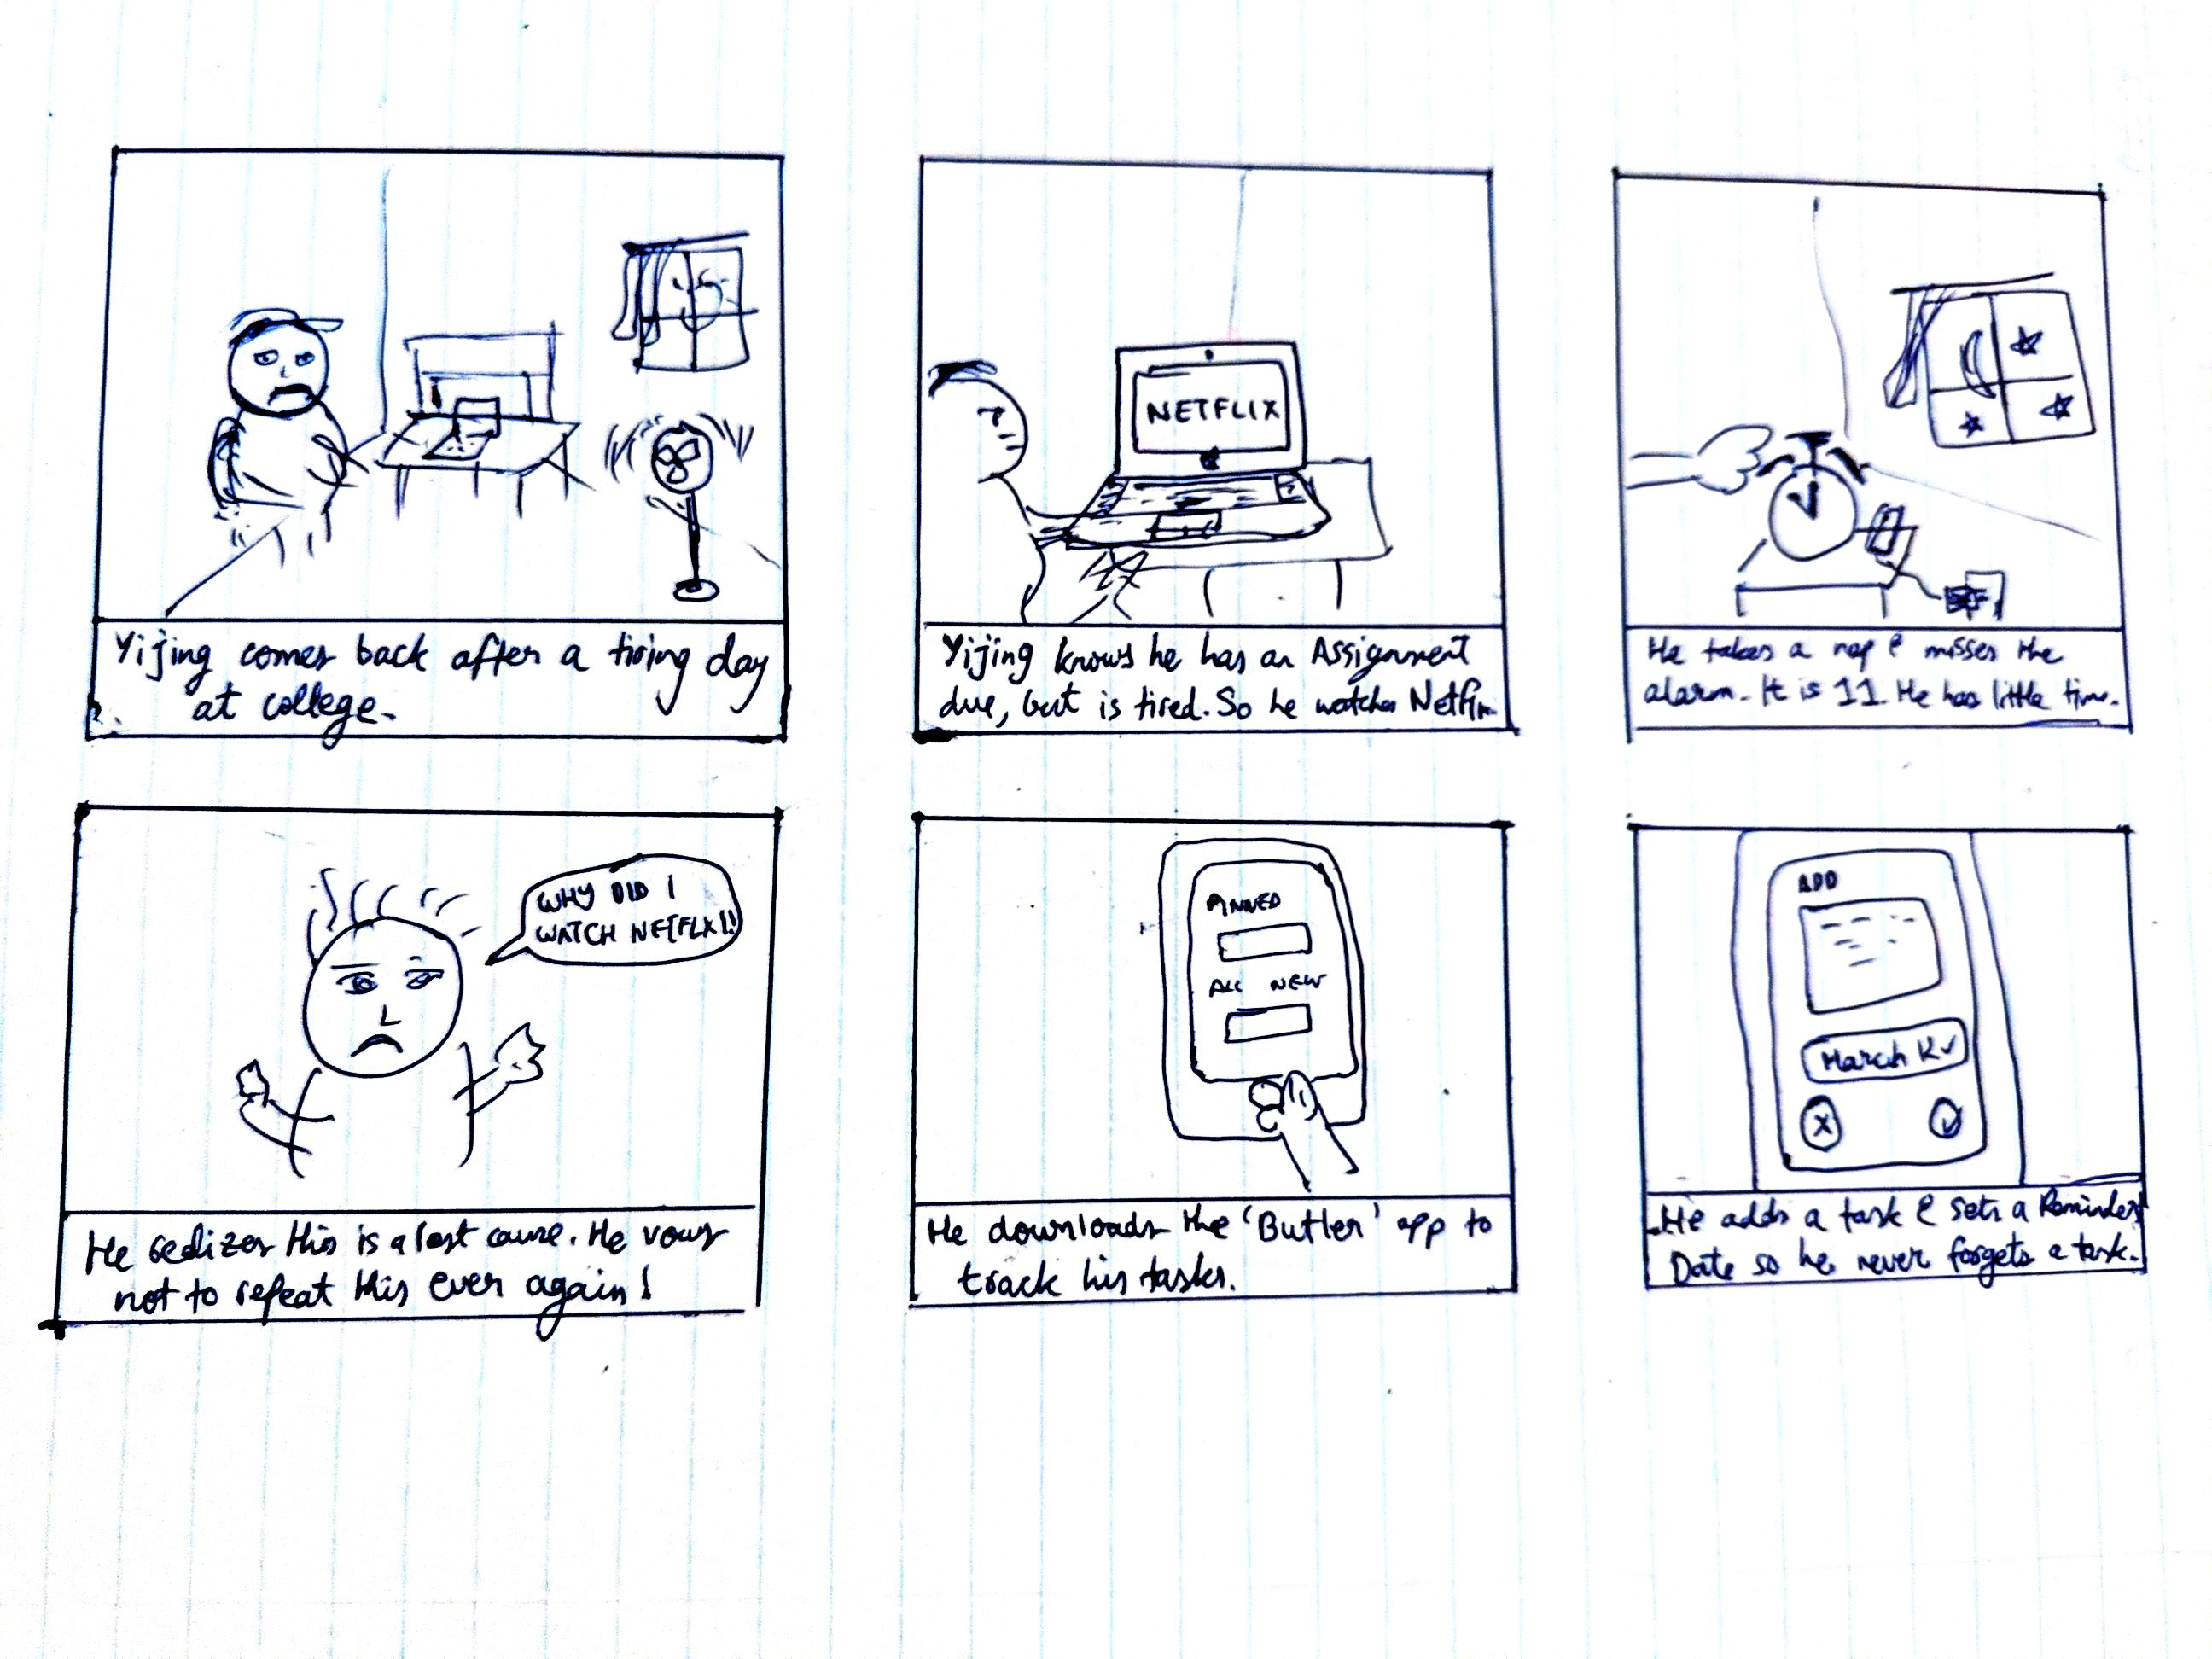 Yijing comes back after a tiring day
at college.
NETFLIX
Yijing knows he has an Assignment
due, but is tired. So he watches Netflix.
He takes a nap & misses the
alarm. It is 11. He has little time.
WHY DID I
WATCH NETFLX!!
He realizes this is a lost cause. He vows
not to repeat this ever again!
PINNED
ALL NEW
He downloads the 'Butler' app to
track his tasks.
ADD
March
X
He adds a task & sets a Reminder
Date so he never forgets a task.